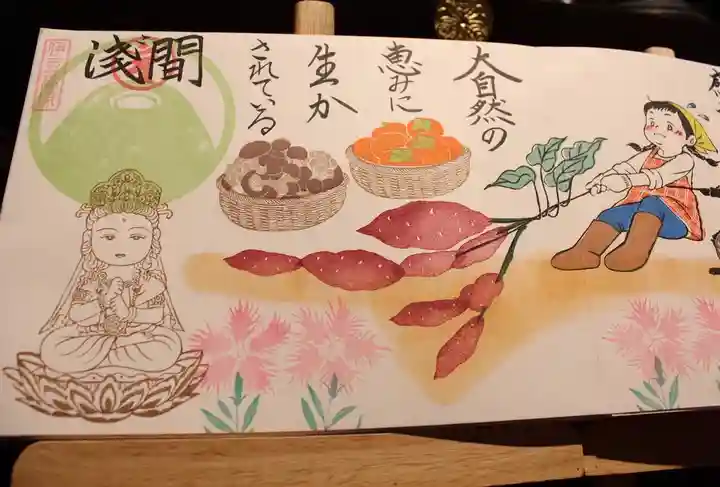 大自然の
恵みに
生か
されている
淺間